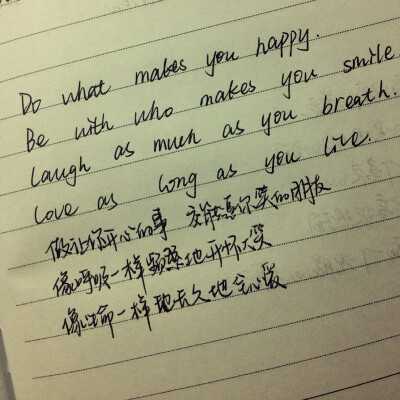 Do what makes you happy.
Be with who makes you smile.
Laugh as much as you breath.
Love as long as you live.
做让你开心的事 交能惹你笑的朋友
像呼吸一样频繁地开怀大笑
像生命一样地长久地去心爱